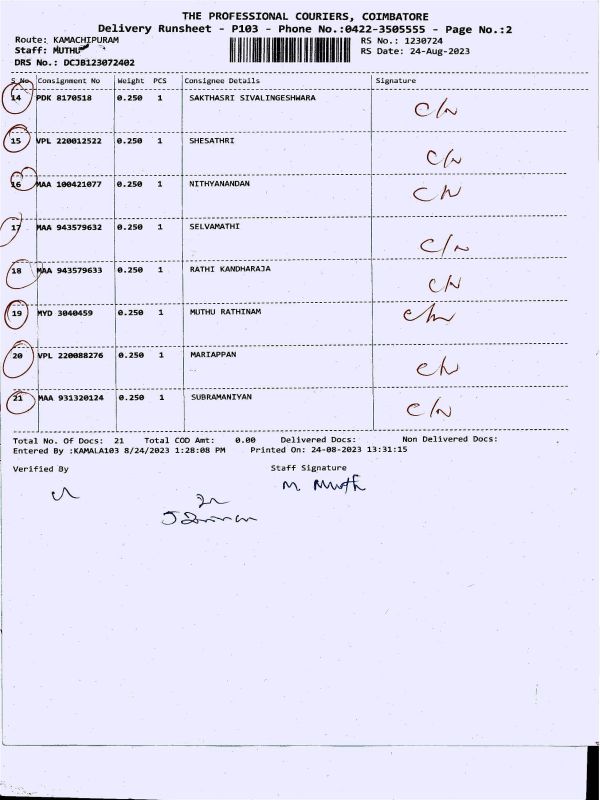 THE PROFESSIONAL COURIERS, COIMBATORE
Delivery Runsheet - P103 - Phone No.:0422-3505555 - Page No.:2
Route: KAMACHIPURAM RS No.: 1230724
Staff: MUTHU RS Date: 24-Aug-2023
DRS No.: DCJB123072402
S No Consignment No Weight PCS Consignee Details Signature
14 PDK 8170518 0.250 1 SAKTHASRI SIVALINGESHWARA C/N
15 VPL 220012522 0.250 1 SHESATHRI C/N
16 MAA 100421077 0.250 1 NITHYANANDAN C/N
17 MAA 943579632 0.250 1 SELVAMATHI C/N
18 MAA 943579633 0.250 1 RATHI KANDHARAJA C/N
19 MYD 3040459 0.250 1 MUTHU RATHINAM C/N
20 VPL 220088276 0.250 1 MARIAPPAN C/N
21 MAA 931320124 0.250 1 SUBRAMANIYAN C/N
Total No. Of Docs: 21 Total COD Amt: 0.00 Delivered Docs: Non Delivered Docs:
Entered By :KAMALA103 8/24/2023 1:28:08 PM Printed On: 24-08-2023 13:31:15
Verified By Staff Signature